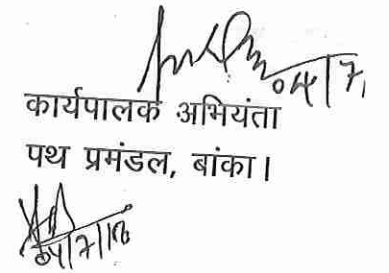 04/7
कार्यपालक अभियंता
पथ प्रमंडल, बांका।
04/7/18